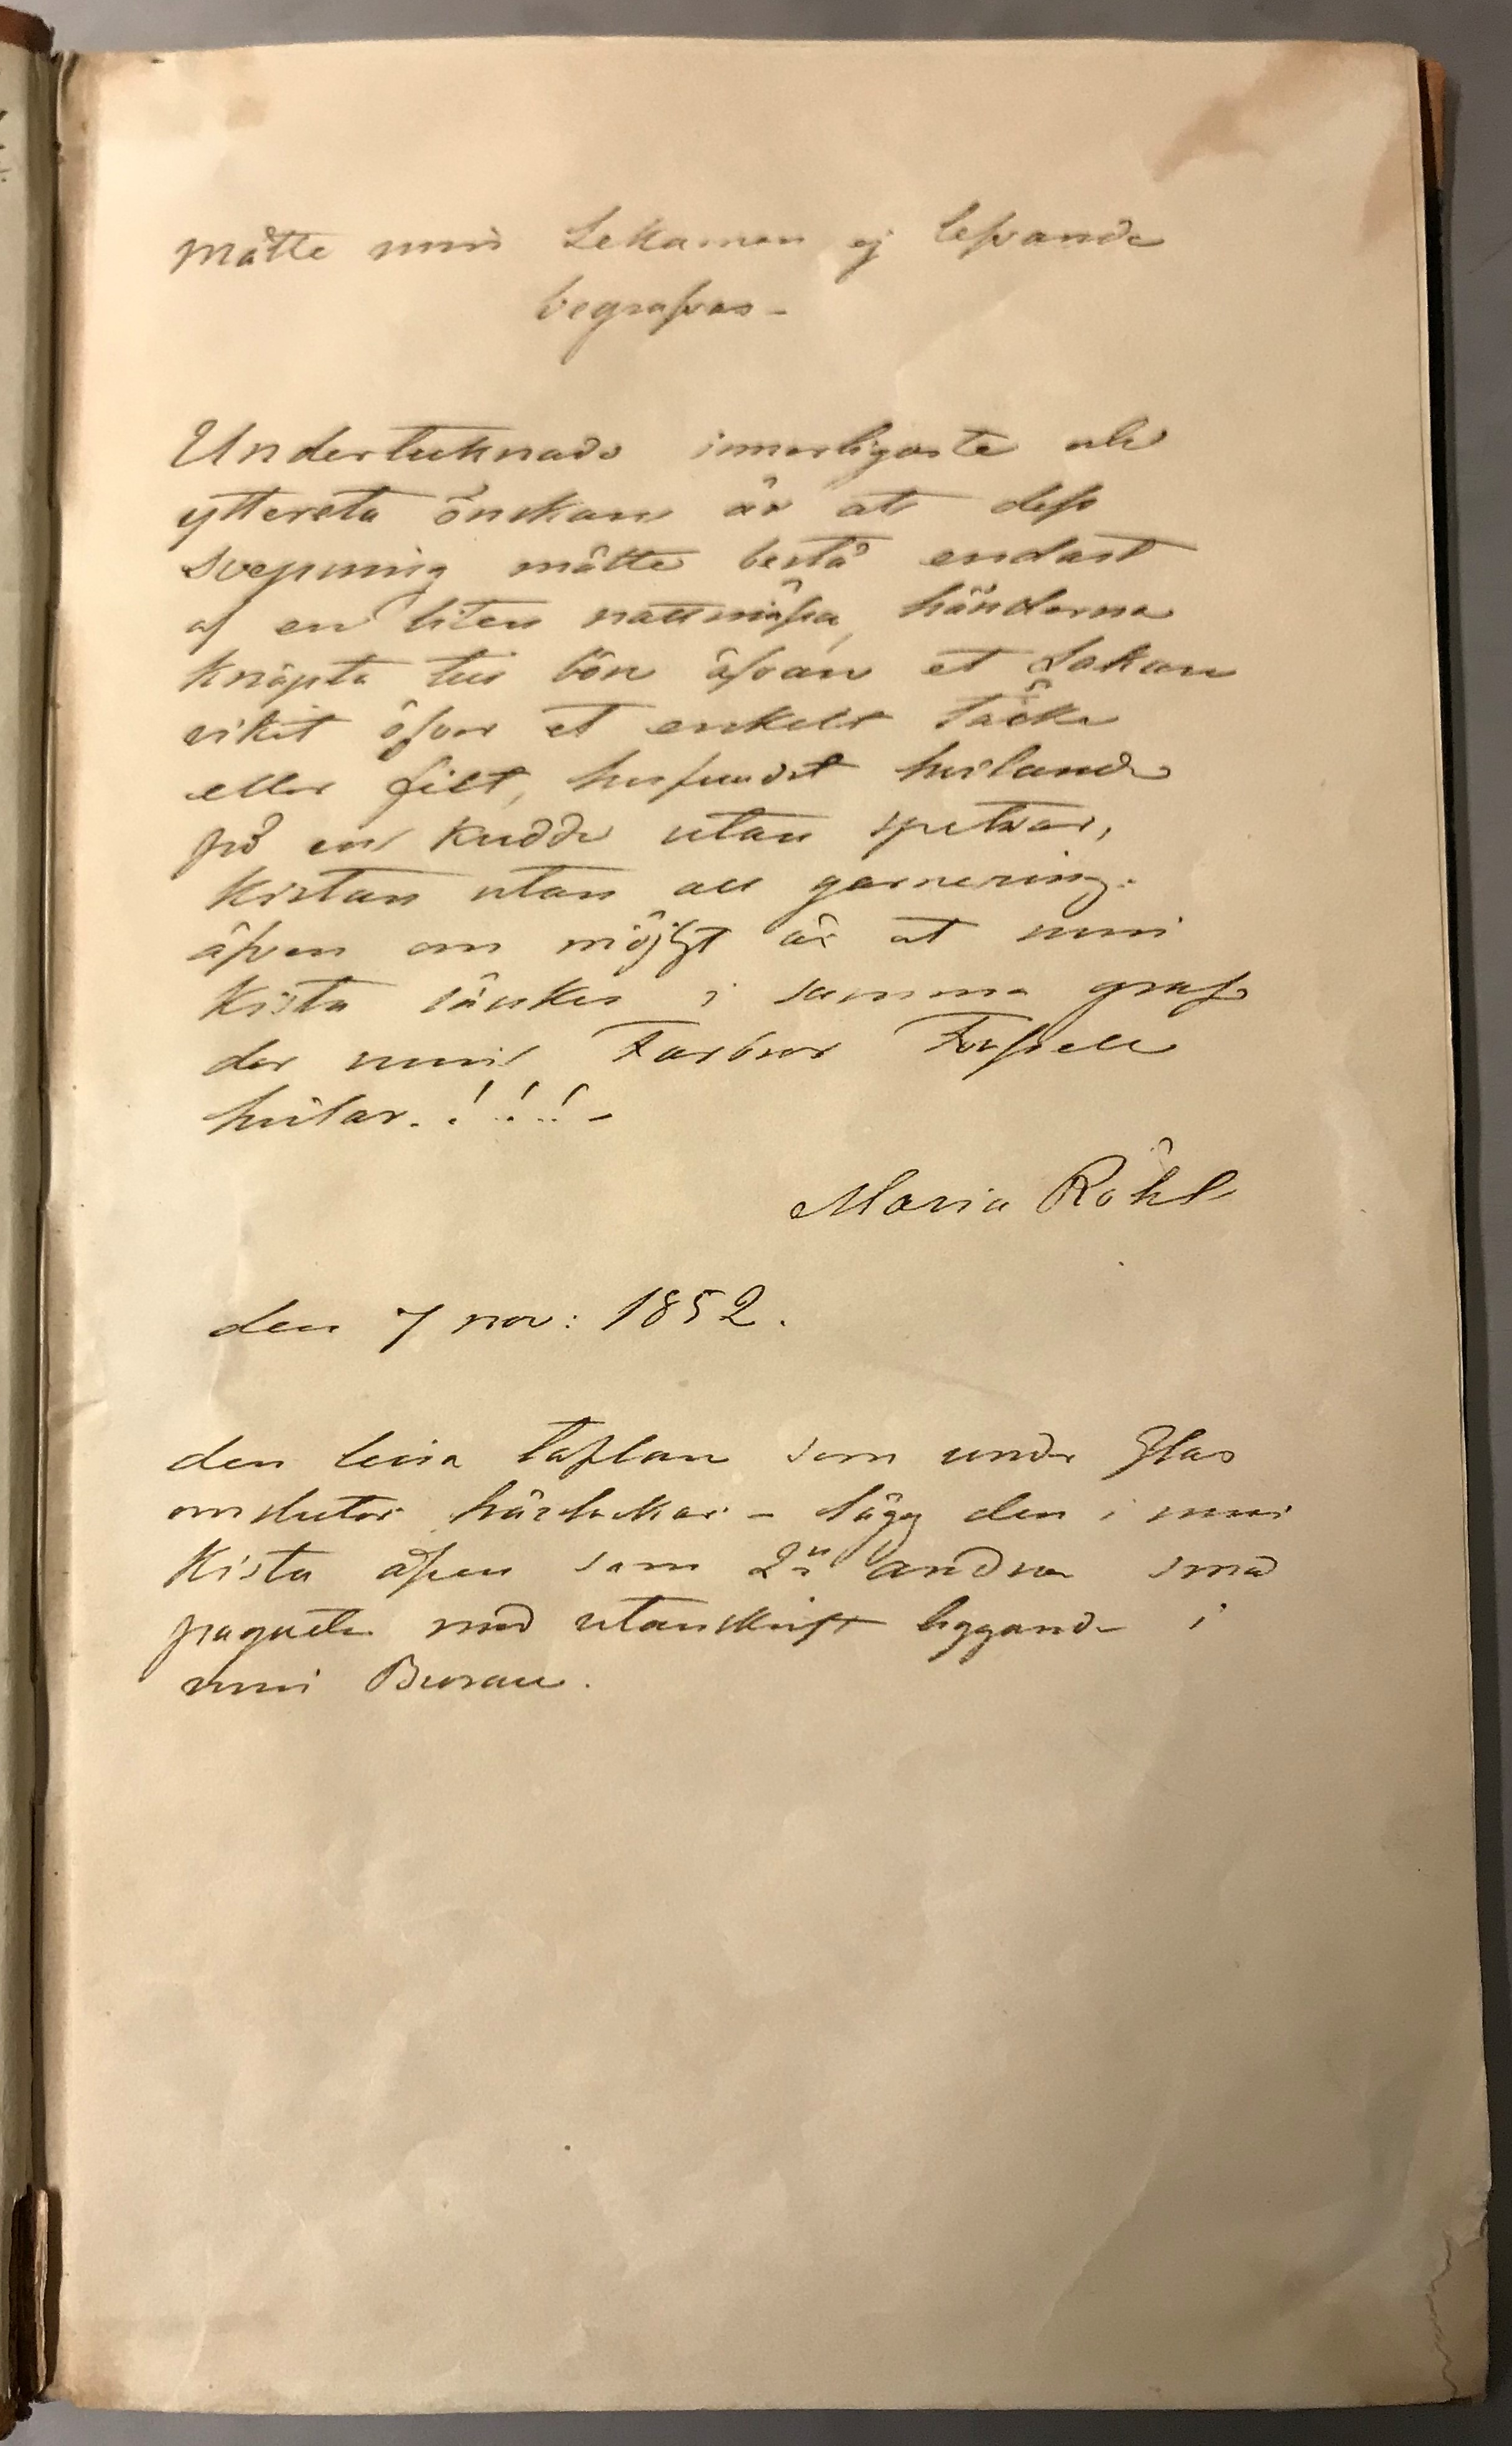 Måtte min Lekamen ej lefvande
begrafvas -
Undertecknads innerligaste och
yttersta önskan är at dess
svepning måtte bestå endast
af en liten nattmössa, händerna
knäpta till bön äfvan et Lakan
vikit öfver et enkelt täcke
eller filt, hufvudet hvilande
på en kudde utan spetsar,
Kistan utan all garnering.
äfven om möjligt är at min
Kista sänkes i samma graf
der min Farbror Forssell
hvilar. ! ! ! -
Maria Röhl
den 7 nov: 1852.
den lilla taflan som under Glas
omsluter hårlockar - lägg den i min
Kista äfven som 2:n andra små
paqueter med utanskrift liggande i
min Bureau.